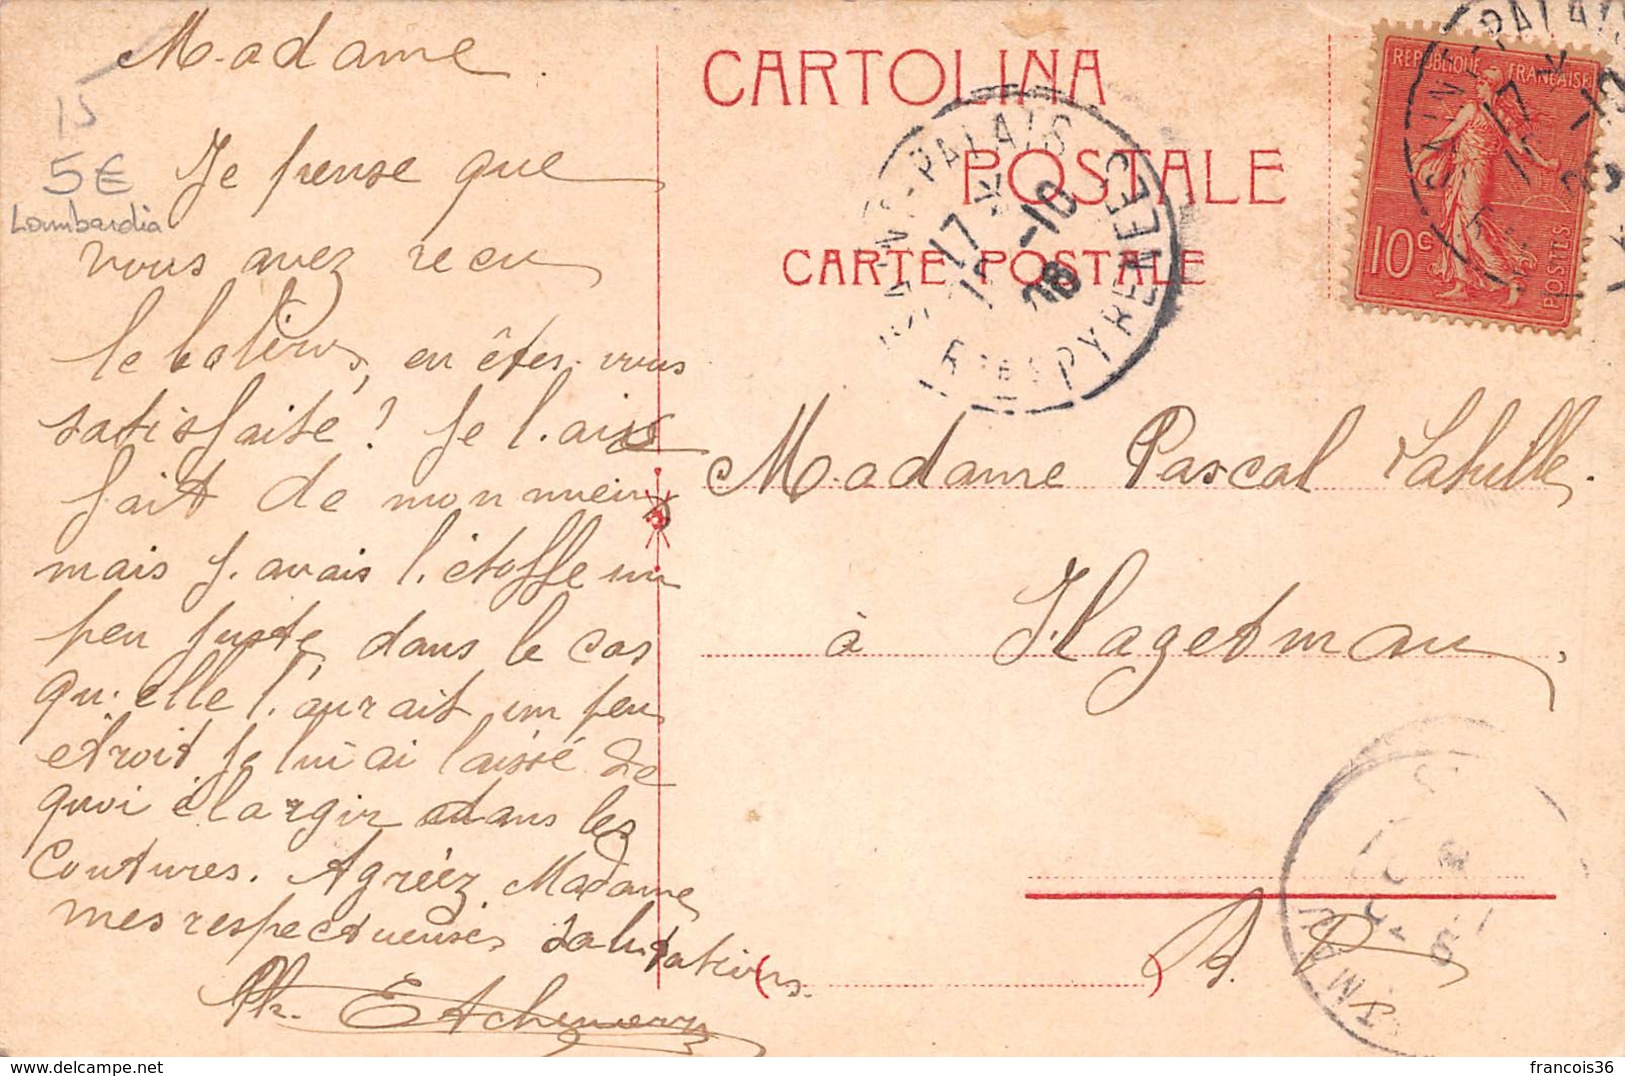 Madame
15
5€
Lombardia
Je pense que
vous avez recu
le boléros, en êtes-vous
satisfaite? Je l'ais
fait de mon mieux
mais j'avais l'étoffe un
peu juste, dans le cas
qu'elle l'aurait un peu
etroit je lui ai laissé de
quoi élargir dans les
coutures. Agréez, Madame
mes respectueuses salutations.
Ph.
CARTOLINA
POSTALE
CARTE POSTALE
PALAIS
17 -10
08
PYRENEES
REPUBLIQUE FRANÇAISE
10c
POSTES
Madame Pascal
à Hagetmau
francois36